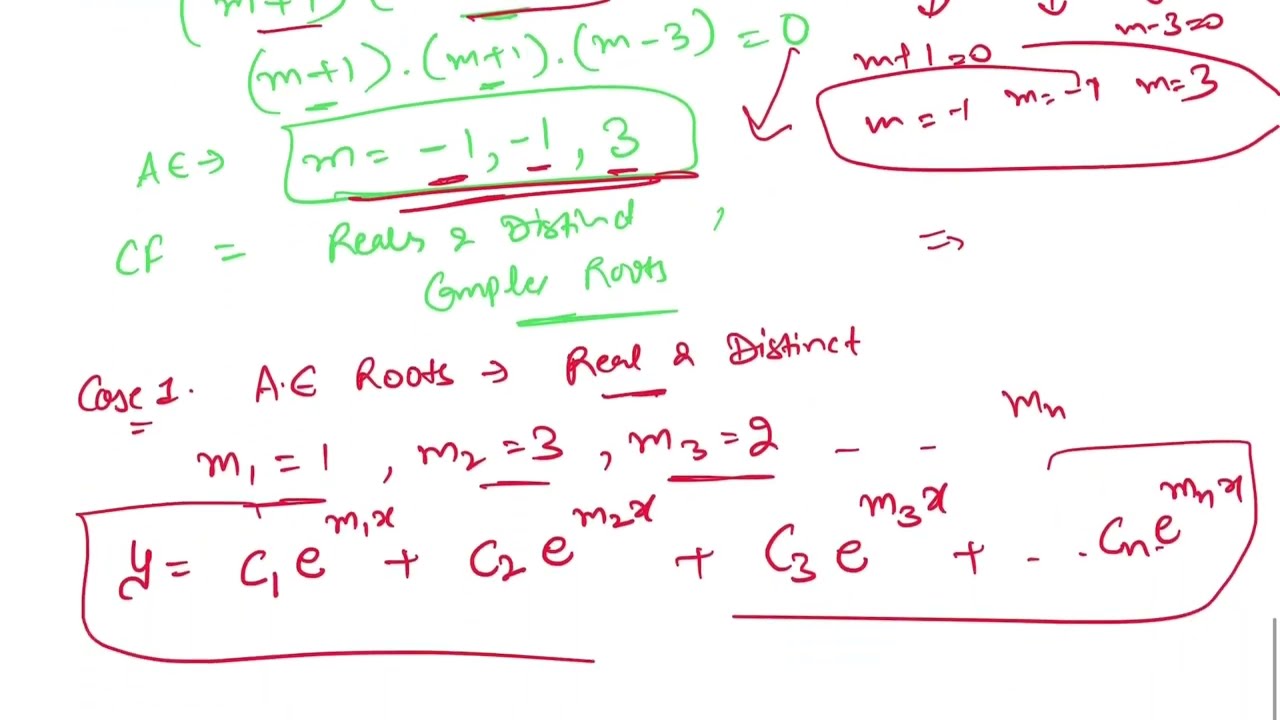 (m+1) (
(m+1) . (m+1) . (m-3) = 0
m-3=0
m+1=0
m = -1 m=-1 m=3
AE → m = -1, -1, 3
CF = Reals & Distinct ,
Complex Roots
⇒
Case 1. A.E Roots → Real & Distinct
m₁ = 1 , m₂ = 3 , m₃ = 2 - - mₙ
y = C₁ e^m₁x + C₂ e^m₂x + C₃ e^m₃x + - . . Cₙ e^mₙx